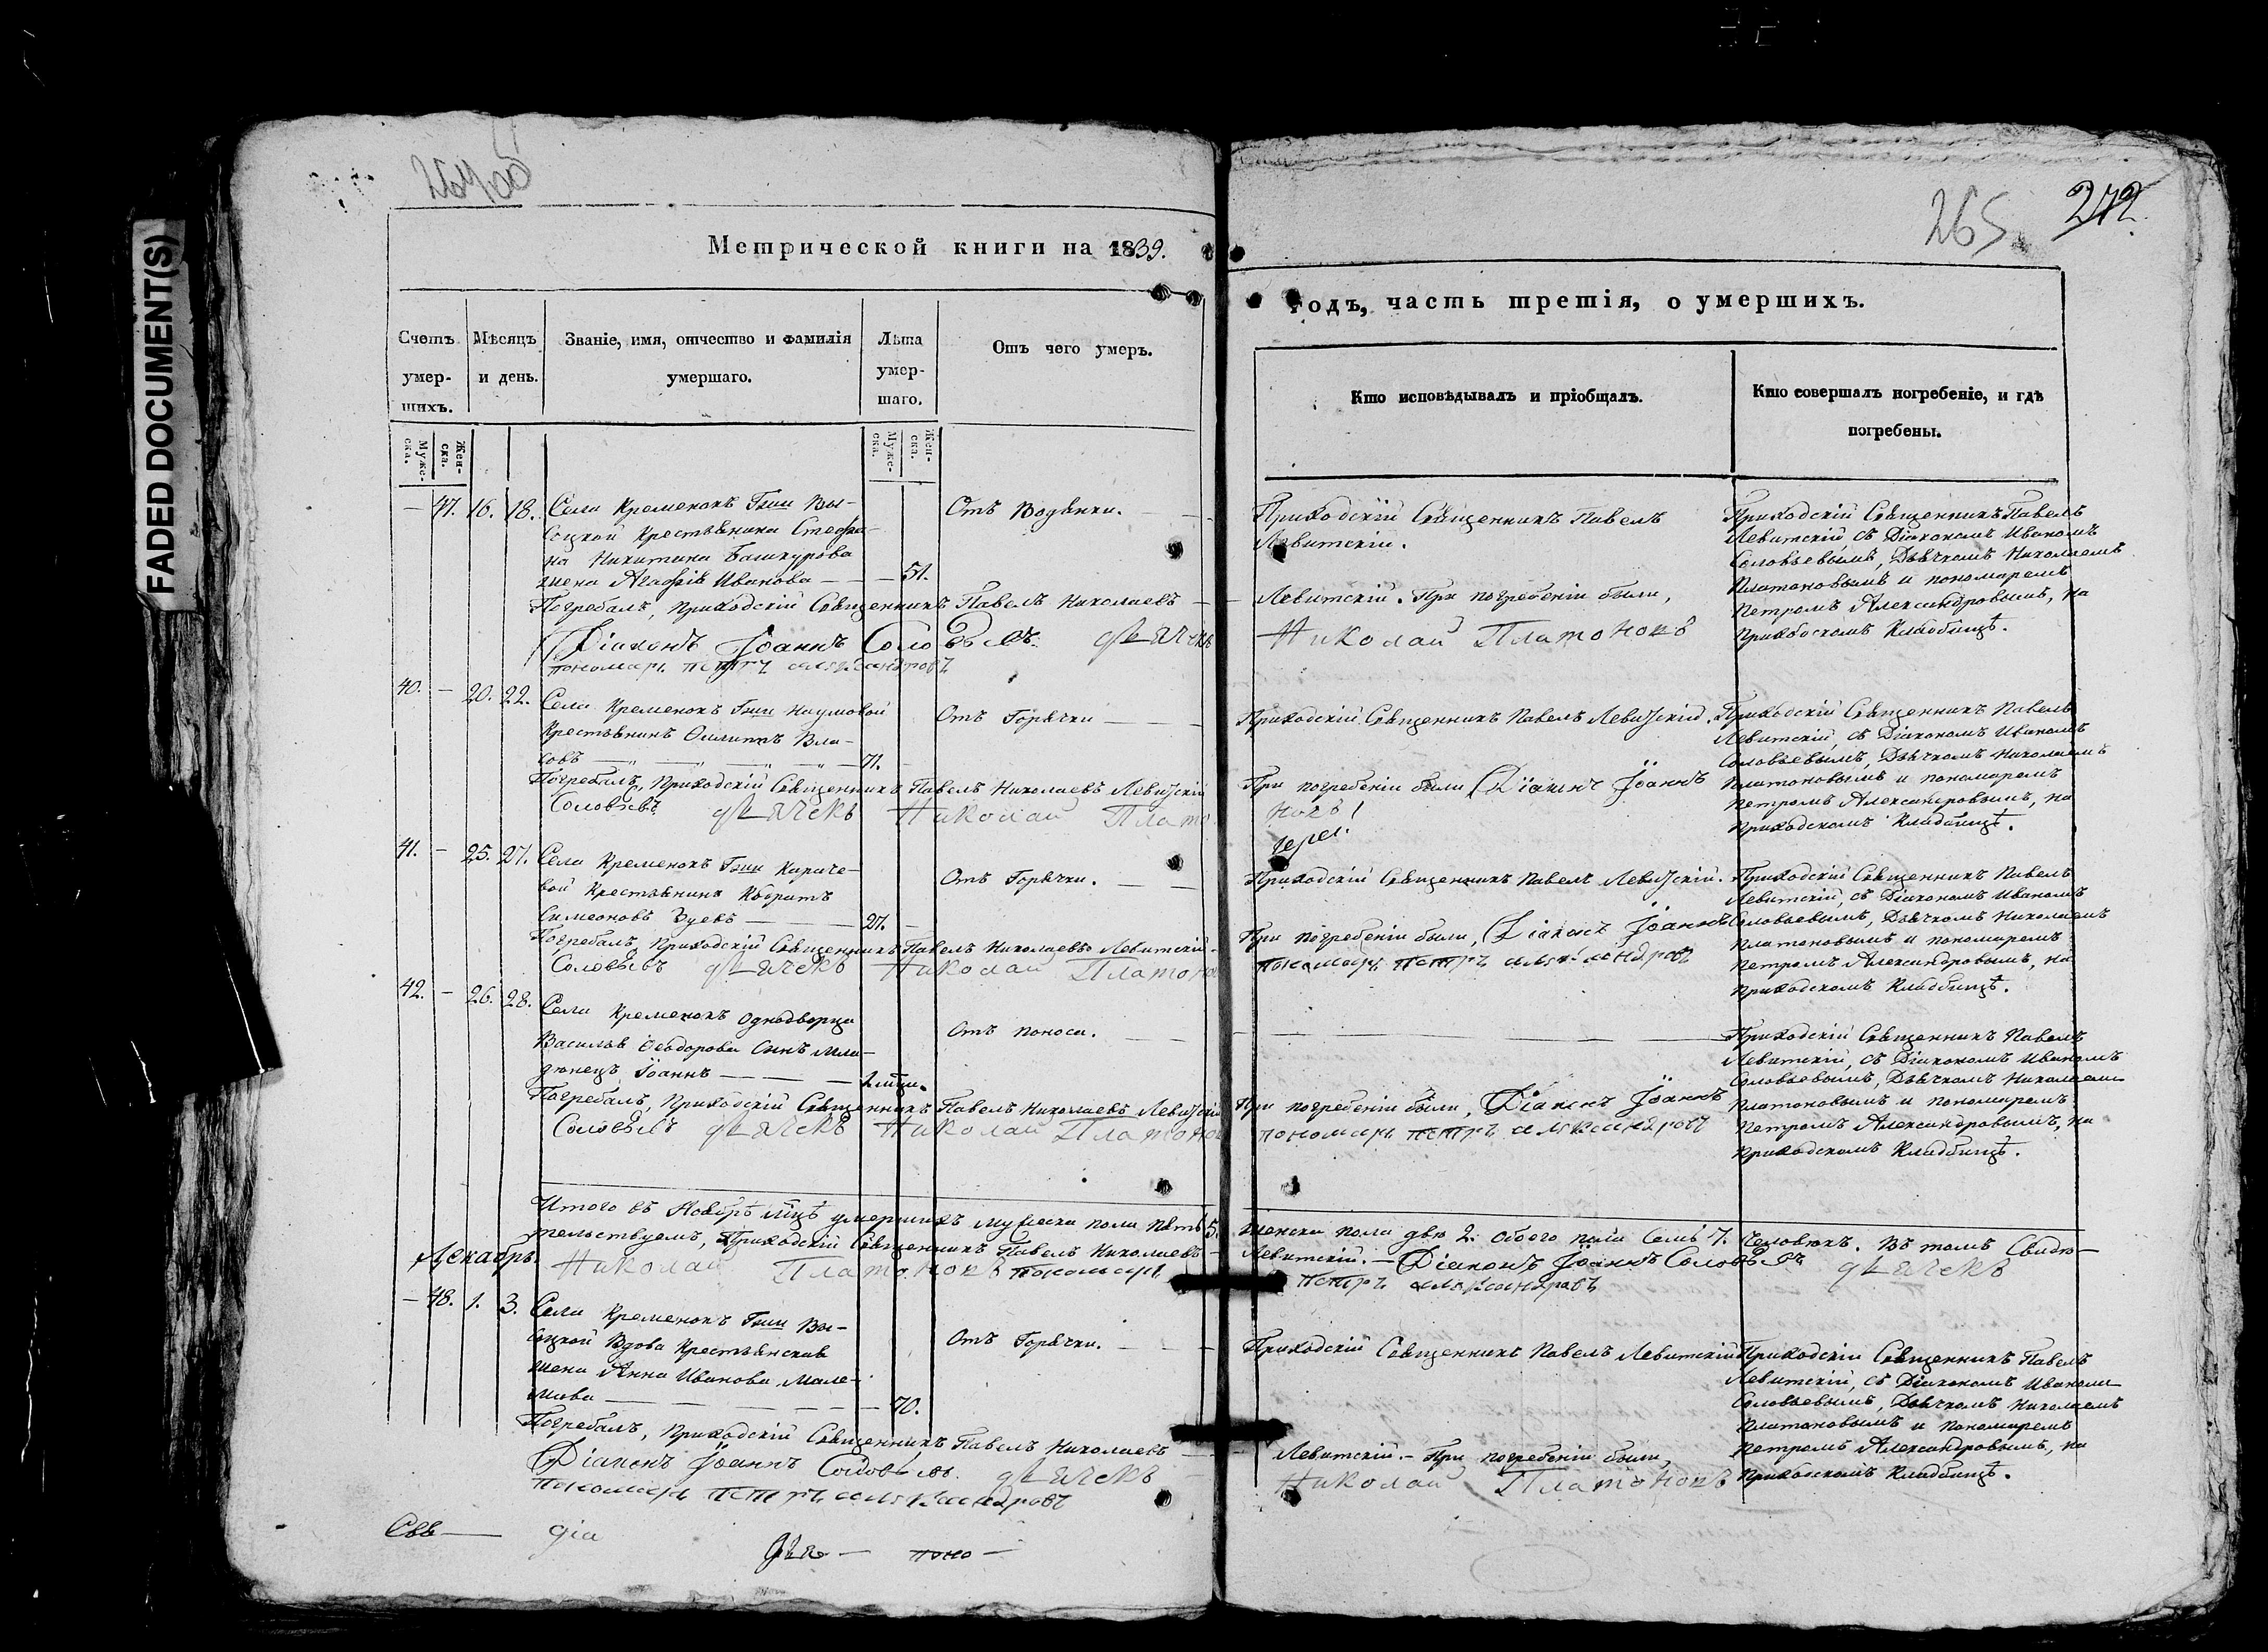 264об
Метрической книги на 1839.
Счетъ умер-шихъ.
Мѣсяцъ и день.
Званіе, имя, отчество и фамилія умершаго.
Лѣта умер-шаго.
Отъ чего умеръ.
Муже-ска.
Жен-ска.
Муже-ска.
Жен-ска.
— 47. 16. 18. Села Кременокъ Гжи Вы-
соцкой Крестьянина Стефа-
на Никитина Башкурова
жена Агафія Иванова — — 51.
Отъ Водянки.
Погребалъ, Приходскій Священникъ Павелъ Николаевъ —
Діаконъ Іоаннъ Соловьевъ. дьячекъ
пономарь петръ александровъ
40. — 20. 22. Села Кременокъ Гжи Наумовой
Крестьянинъ Филиппъ Вла-
совъ — 71.
Отъ Горячки
Погребалъ, Приходскій Священникъ Павелъ Николаевъ Левитскій
Соловьевъ дьячекъ Николай Плато
41. — 25. 27. Села Кременокъ Гжи Караче-
вой Крестьянинъ Кодратъ
Симеоновъ Зуевъ — 27.
Отъ Горячки.
Погребалъ, Приходскій Священникъ Павелъ Николаевъ Левитскій.
Соловьевъ дьячекъ Николай Платоно
42. — 26. 28. Села Кременокъ Однодворца
Василья Ѳеодорова сынъ мла-
денецъ Іоаннъ —
Отъ поноса.
Погребалъ, Приходскій Священникъ Павелъ Николаевъ Левитскій
Соловьевъ дьячекъ Николай Платонов
Итого въ Ноябрѣ мцѣ умершихъ мужеска пола пять 5.
тельствуемъ, Приходскій Священникъ Павелъ Николаевъ —
Декабрь. Николай Платоновъ пономарь
— 48. 1. 3. Села Кременокъ Гжи Вы-
соцкой Вдова Крестьянская
жена Анна Иванова
70.
Отъ Горячки.
Погребалъ, Приходскій Священникъ Павелъ Николаевъ
Діаконъ Іоаннъ Соловьевъ. дьячекъ
пономарь петръ александровъ
Свя— діа
дья— поно—
265 272.
годъ, часть третія, о умершихъ.
Кто исповѣдывалъ и пріобщалъ.
Кто совершалъ погребеніе, и гдѣ погребены.
Приходскій Священникъ Павелъ
Левитскій.
Приходскій Священникъ Павелъ
Левитскій, съ Діакономъ Иваномъ
Соловьевымъ, Дьячкомъ Николаемъ
Платоновымъ и пономаремъ
Петромъ Александровымъ, на
Приходскомъ Кладбищѣ.
Левитскій. При погребеніи были,
Николай Платоновъ
Приходскій Священникъ Павелъ Левитскій.
Приходскій Священникъ Павелъ
Левитскій, съ Діакономъ Иваномъ
Соловьевымъ, Дьячкомъ Николаемъ
Платоновымъ и пономаремъ
Петромъ Александровымъ, на
Приходскомъ Кладбищѣ.
При погребеніи были, Діаконъ Іоаннъ
новъ
Приходскій Священникъ Павелъ Левитскій.
Приходскій Священникъ Павелъ
Левитскій, съ Діакономъ Иваномъ
Соловьевымъ, Дьячкомъ Николаемъ
Платоновымъ и пономаремъ
Петромъ Александровымъ, на
Приходскомъ Кладбищѣ.
При погребеніи были, Діаконъ Іоаннъ
пономарь петръ александровъ
Приходскій Священникъ Павелъ
Левитскій, съ Діакономъ Иваномъ
Соловьевымъ, Дьячкомъ Николаемъ
Платоновымъ и пономаремъ
Петромъ Александровымъ, на
Приходскомъ Кладбищѣ.
При погребеніи были, Діаконъ Іоаннъ
пономарь петръ александровъ
женска пола двѣ 2. обоего пола семь 7. Человѣкъ. Въ томъ Свидѣ—
Левитскій. — Діаконъ Іоаннъ Соловьевъ дьячекъ
петръ александровъ
Приходскій Священникъ Павелъ Левитскій
Приходскій Священникъ Павелъ
Левитскій, съ Діакономъ Иваномъ
Соловьевымъ, Дьячкомъ Николаемъ
Платоновымъ и Пономаремъ
Петромъ Александровымъ, на
Приходскомъ Кладбищѣ.
Левитскій. — При погребеніи были,
Николай Платоновъ
FADED DOCUMENT(S)